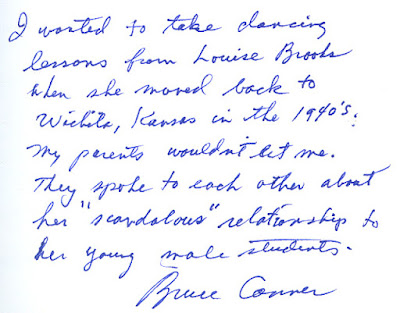 I wanted to take dancing
lessons from Louise Brooks
when she moved back to
Wichita, Kansas in the 1940's.
My parents wouldn't let me.
They spoke to each other about
her "scandalous" relationship to
her young male students.
Bruce Conner